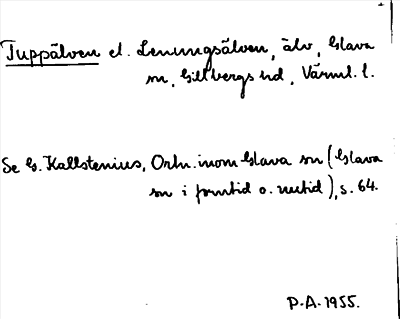 Tuppälven el. Lenungsälven, älv, Glava
sn, Gillbergs hd, Värml. l.
Se G. Kallstenius, Ortn. inom Glava sn (Glava
sn i forntid o. nutid), s. 64.
P.A. 1955.